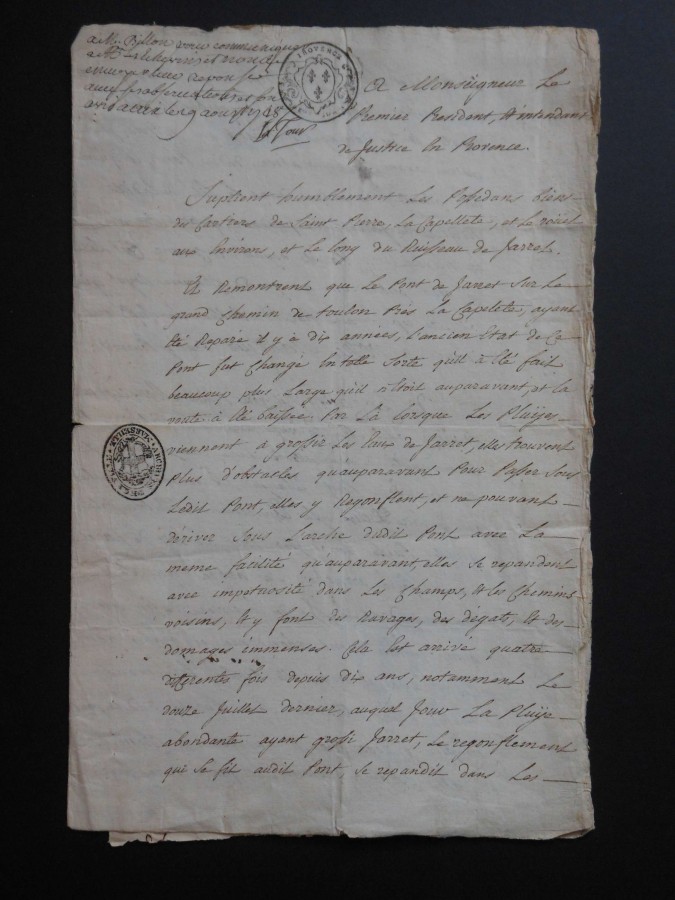 a Mr Billon pour communiquer
envoyer leur reponse
avis a aix le 9 aoust
la Tour
PROVENCE
A Monseigneur Le
Premier President, et intendant
de Justice En Provence.
Suplient humblement Les Possedans biens
des Cartiers de Saint Pierre, La Capellete, et Le rouet
aux Environs, et Le long du Ruisseau de Jarret.
Et Remontrent que Le Pont de Jarret sur Le
grand Chemin de toulon Près La Capelete, ayant
été Reparé il y à dix années, l'ancien Etat de Ce
Pont fut Changé En telle sorte qu'il à été fait
beaucoup plus Large qu'il n'étoit auparavant, et la
voute à été baissée. Par Là lorsque Les Pluÿes
viennent à grossir Les Eaux de Jarret, elles trouvent
Plus d'obstacles qu'auparavant Pour Passer sous
Ledit Pont, elles y Regonflent, et ne pouvant
dériver sous L'arche dudit Pont avec La
meme facilité qu'auparavant elles se repandent
avec impetuosité dans Les Champs, et les Chemins
voisins, Et y font des Ravages, des dégats, Et des
domages immenses. Cela Est arrivé quatre
differentes fois depuis dix ans, notamment Le
douze Juillet dernier, auquel Jour La Pluÿe
abondante ayant grossi Jarret, Le regonflement
qui se fit audit Pont, se repandit dans Les
ARCHIVES DE LA VILLE MARSEILLE